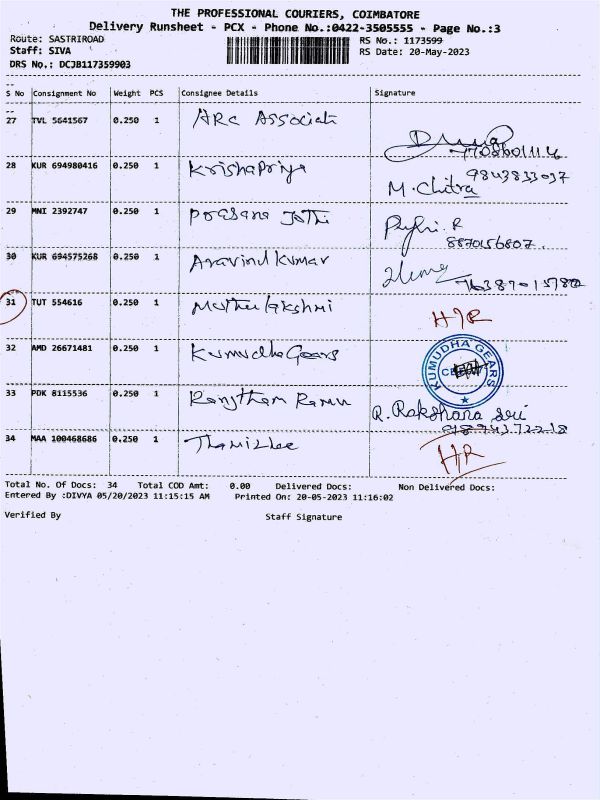 THE PROFESSIONAL COURIERS, COIMBATORE
Delivery Runsheet - PCX - Phone No.:0422-3505555 - Page No.:3
Route: SASTRIROAD RS No.: 1173599
Staff: SIVA RS Date: 20-May-2023
DRS No.: DCJB117359903
S No Consignment No Weight PCS Consignee Details Signature
27 TVL 5641567 0.250 1 ARC Associate
28 KUR 694980416 0.250 1 Krishapriya 9843833037
M. Chitra
29 MNI 2392747 0.250 1 Prasana Jothi
8870156807.
30 KUR 694575268 0.250 1 Aravind Kumar
31 TUT 554616 0.250 1 Muthulakshmi H/R
32 AMD 26671481 0.250 1 Kumudha Gears KUMUDHA GEARS
33 PDK 8115536 0.250 1 R. Rakshana Sri
34 MAA 100468686 0.250 1 H/R
Total No. Of Docs: 34 Total COD Amt: 0.00 Delivered Docs: Non Delivered Docs:
Entered By :DIVYA 05/20/2023 11:15:15 AM Printed On: 20-05-2023 11:16:02
Verified By Staff Signature